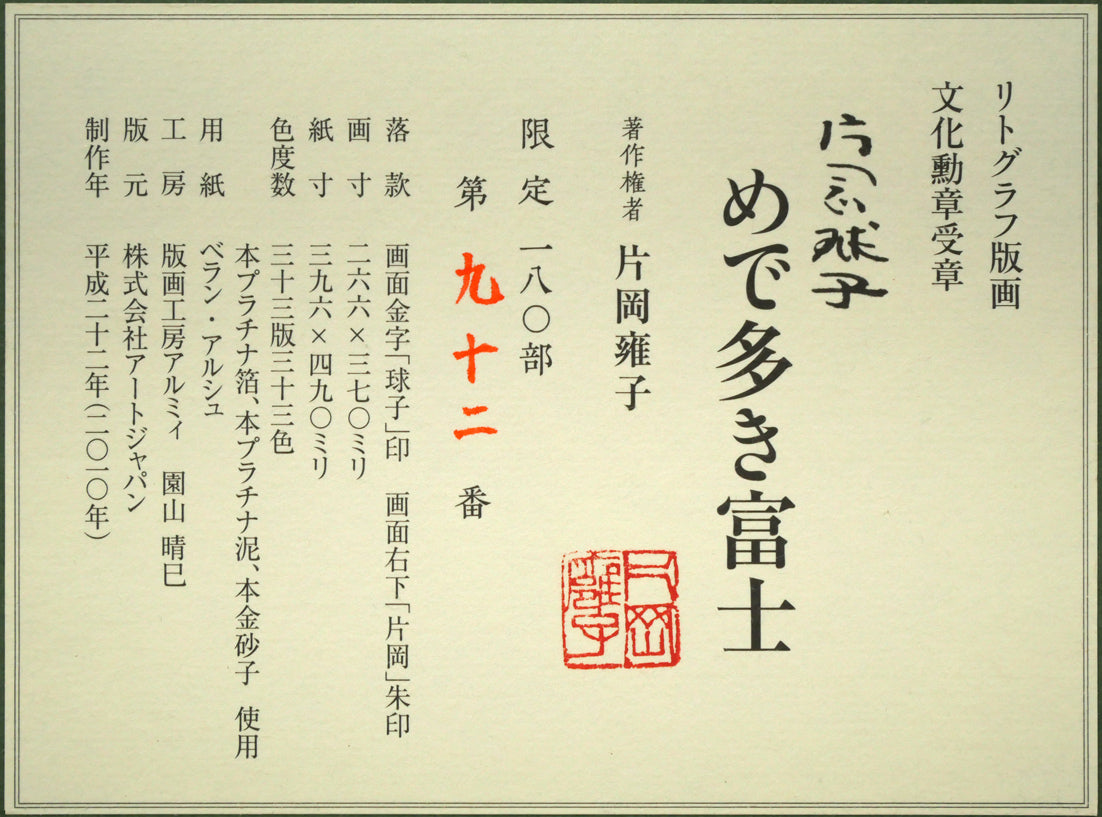 リトグラフ版画
文化勲章受章
片岡球子
めで多き富士
著作権者 片岡雍子
片岡雍子
限定 一八〇部
第 九十二 番
落款 画面金字「球子」印 画面右下「片岡」朱印
画寸 二六六×三七〇ミリ
紙寸 三九六×四九〇ミリ
色度数 三十三版三十三色
本プラチナ箔、本プラチナ泥、本金砂子 使用
用紙 ベラン・アルシュ
工房 版画工房アルミィ 園山 晴巳
版元 株式会社アートジャパン
制作年 平成二十二年(二〇一〇年)